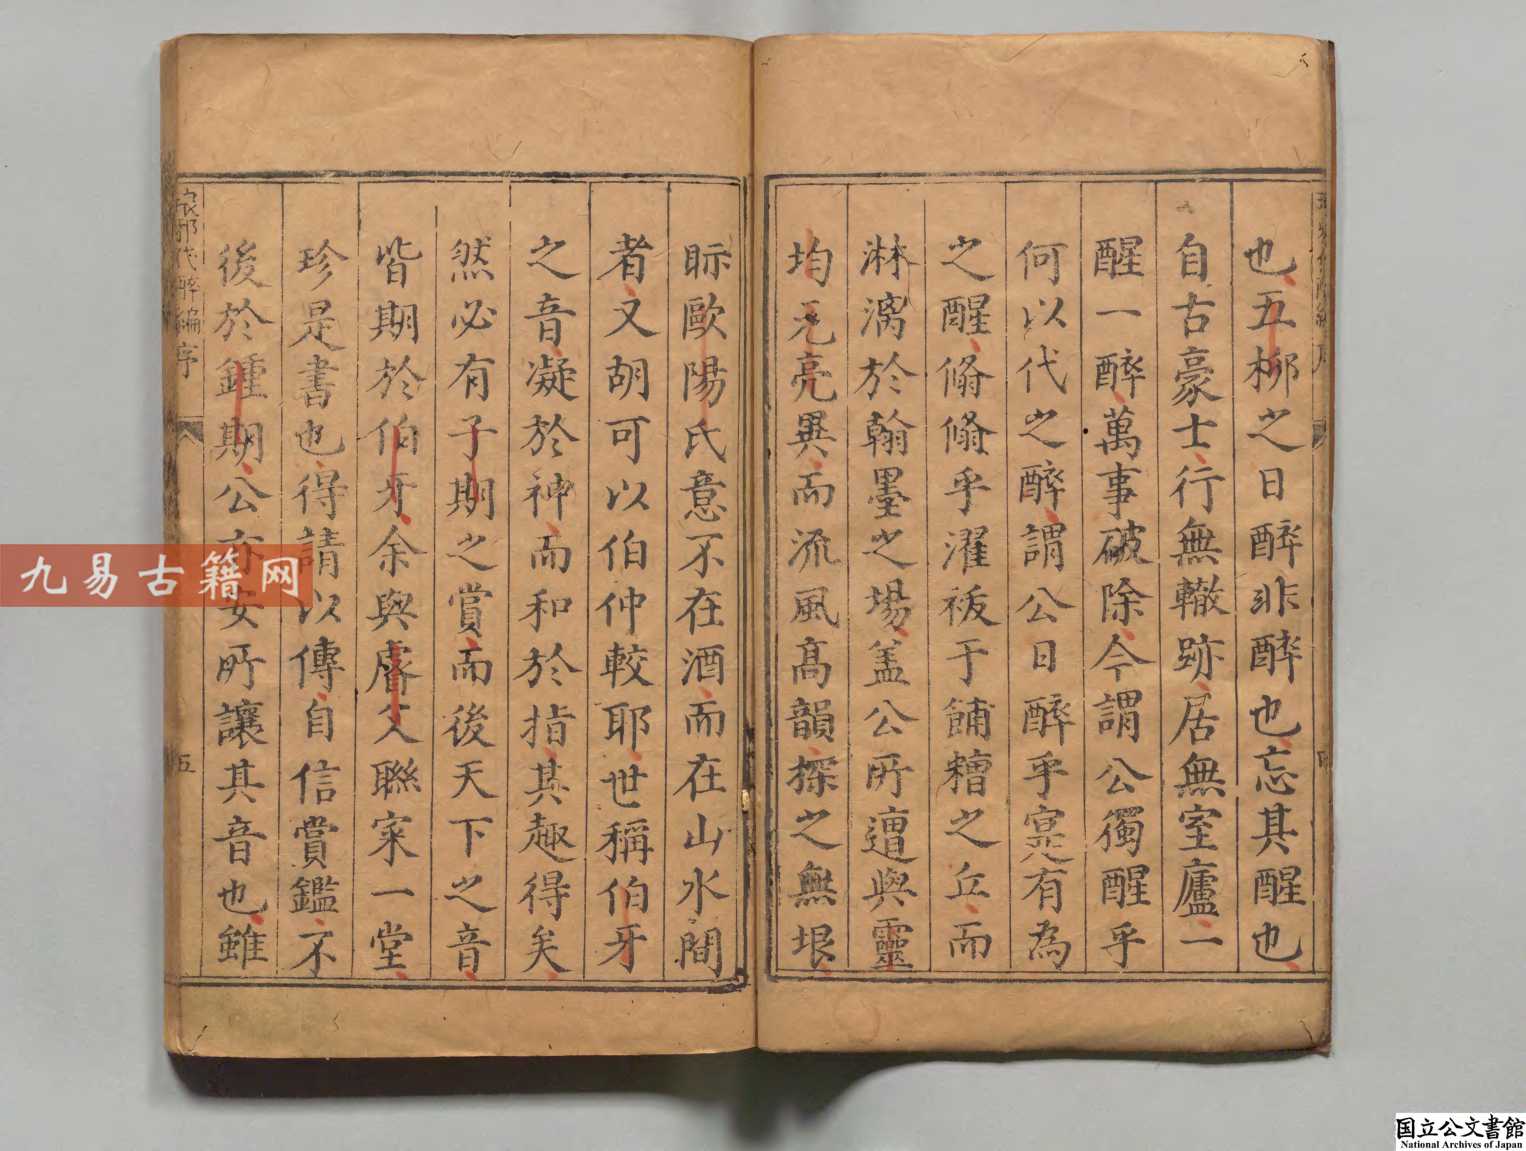 也五柳之日醉非醉也忘其醒也
自古豪士行無轍跡居無室廬一
醒一醉萬事破除今謂公獨醒乎
何以代之醉謂公日醉乎寔有為
之醒翛翛乎濯祓于餔糟之丘而
淋漓於翰墨之場盖公所遭與靈
均元亮異而流風高韻探之無垠
眎歐陽氏意不在酒而在山水間
者又胡可以伯仲較耶世稱伯牙
之音凝於神而和於指其趣得矣
然必有子期之賞而後天下之音
皆期於伯牙余與睿父聯宷一堂
珍是書也得請以傳自信賞鑑不
後於鍾期公亦安所讓其音也雖
琅邪代醉編 序
五
九易古籍网
国立公文書館
National Archives of Japan